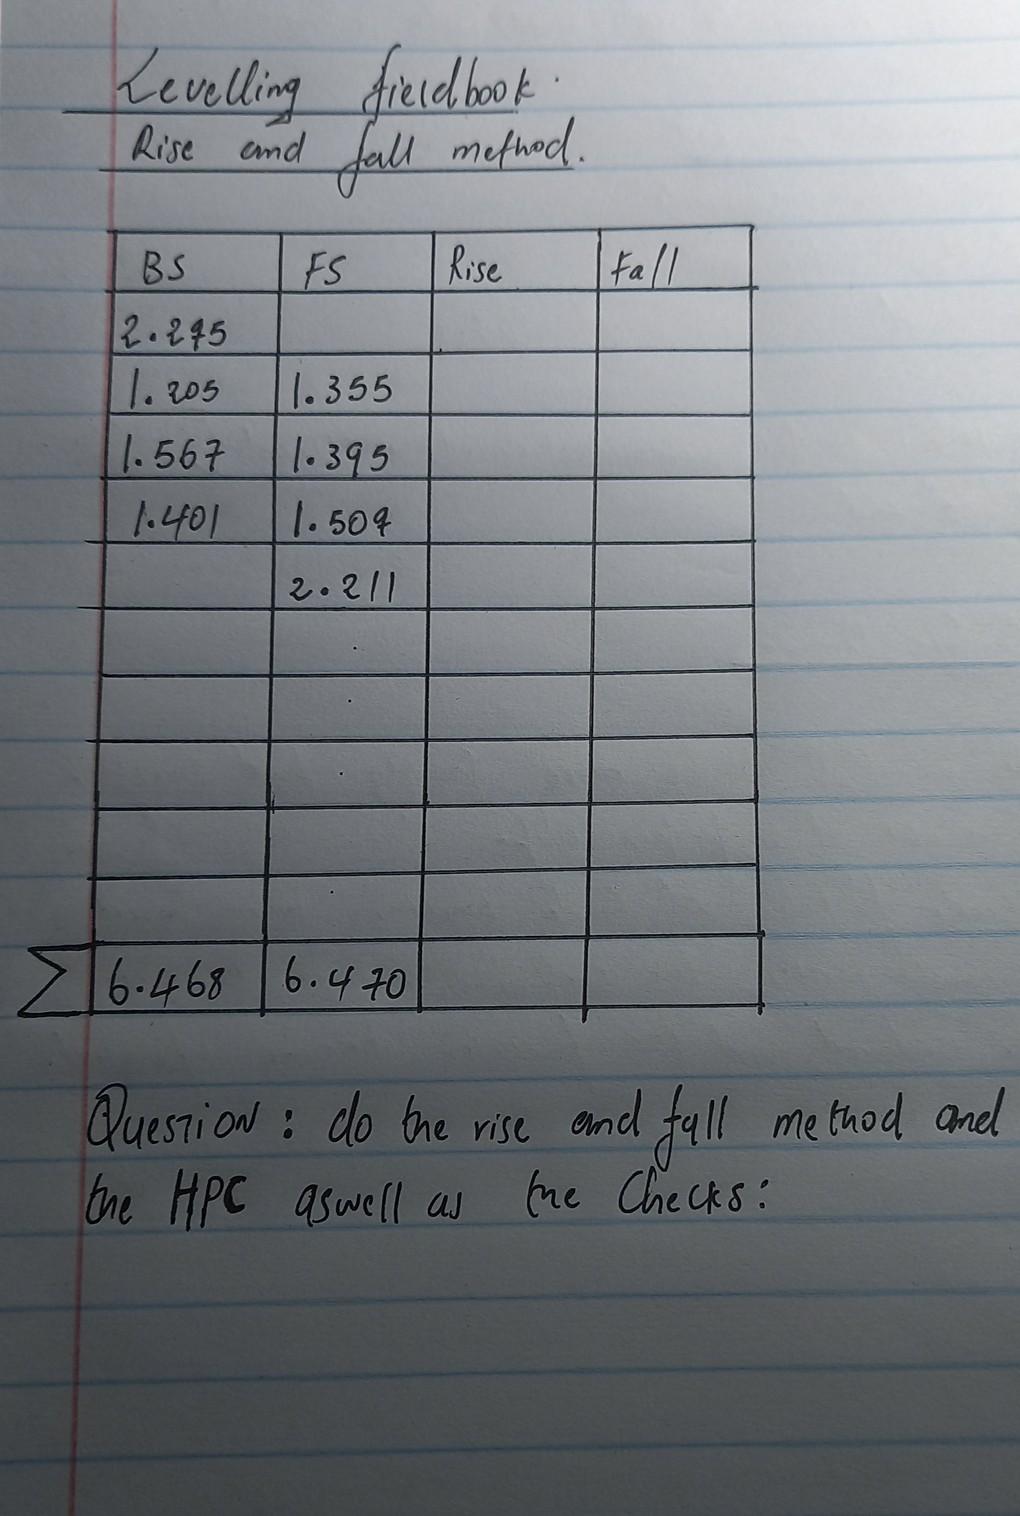 Levelling fieldbook.
Rise and fall method.
BS FS Rise Fall
2.295
1.205 1.355
1.567 1.395
1.401 1.509
2.211
Σ 6.468 6.470
Question: do the rise and fall method and
the HPC aswell as the Checks: